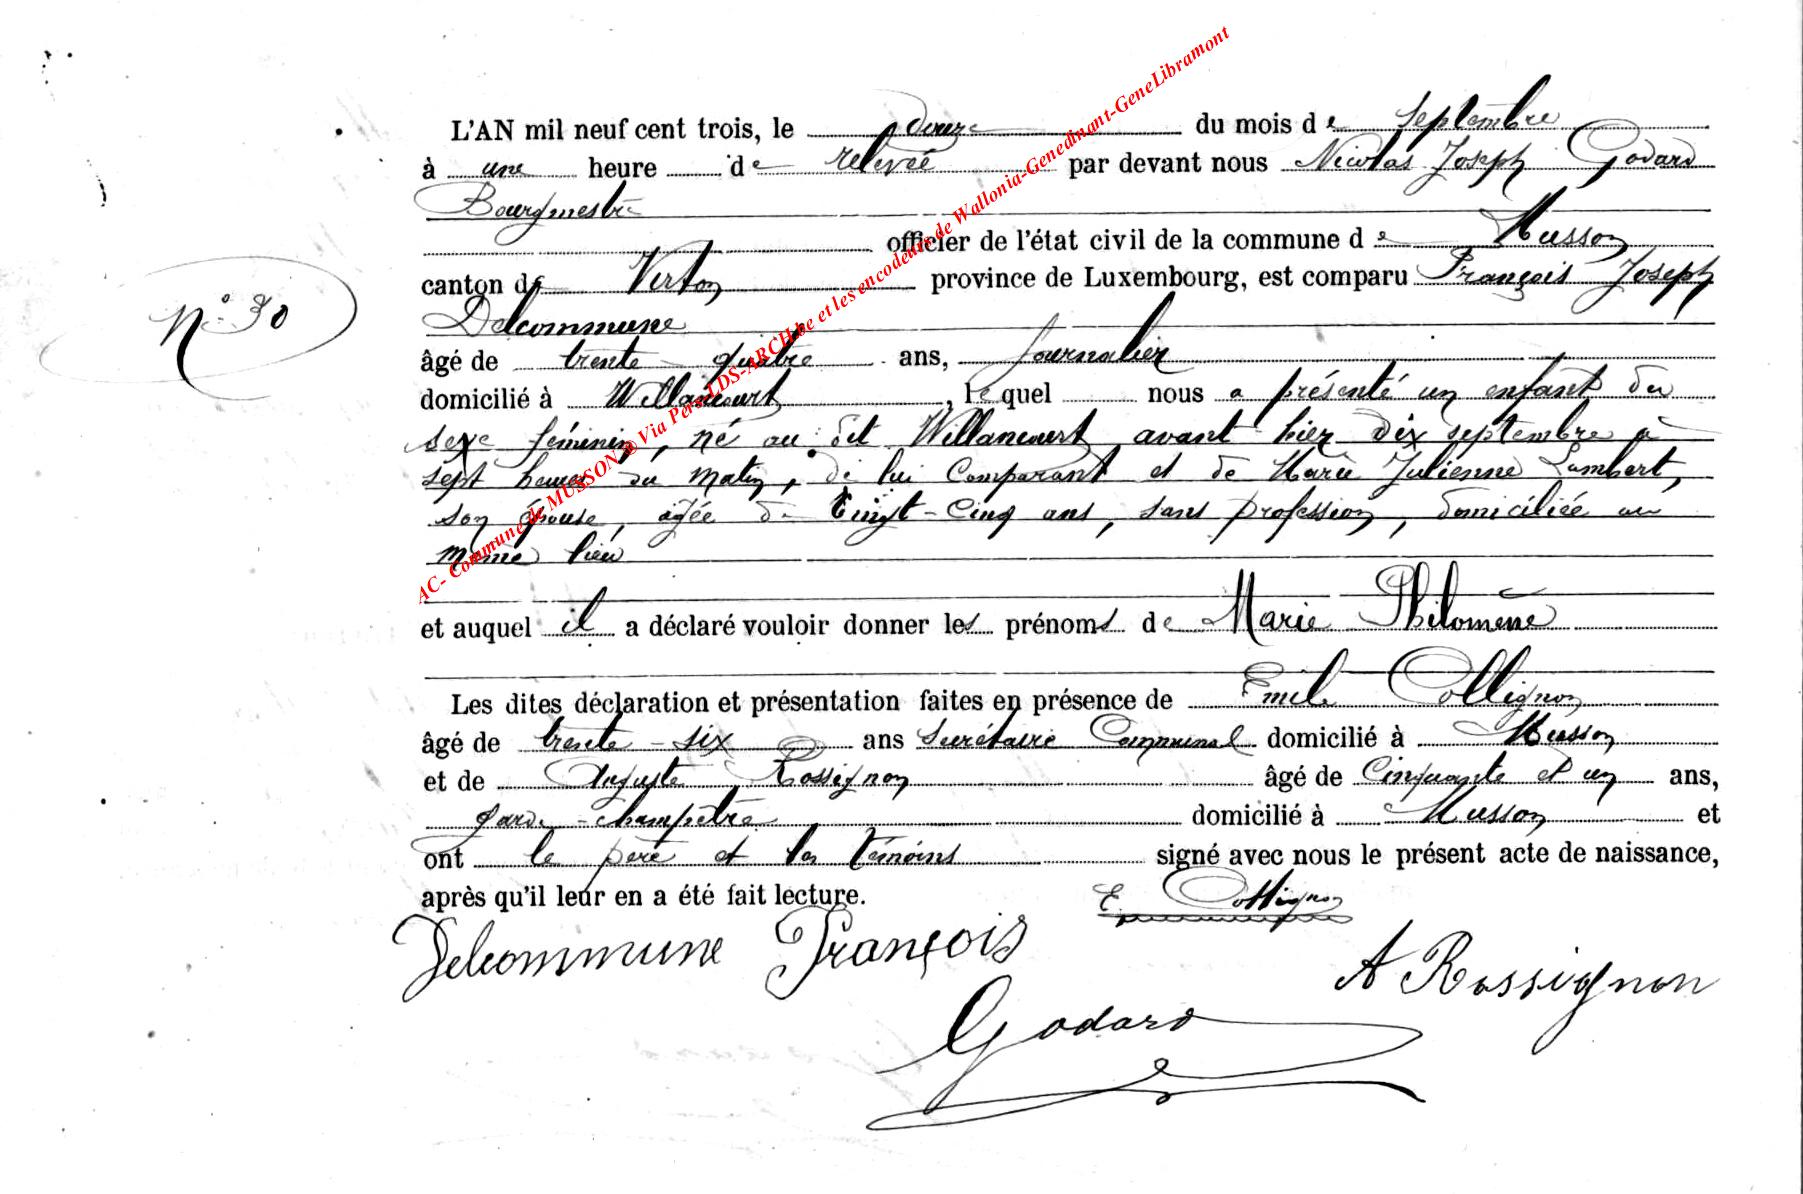 L'AN mil neuf cent trois, le douze du mois de septembre
à une heure de relevée par devant nous Nicolas Joseph Godard
Bourgmestre
officier de l'état civil de la commune de Musson
canton de Virton province de Luxembourg, est comparu François Joseph
N° 30
Delcommune
âgé de trente-quatre ans, journalier
domicilié à Willancourt, lequel nous a présenté un enfant du
sexe féminin, né au dit Willancourt avant-hier dix septembre à
sept heures du matin, de lui comparant et de Marie Julienne Lambert,
son épouse, agée de Vingt-Cinq ans, sans profession, domiciliée au
même lieu
et auquel il a déclaré vouloir donner les prénoms de Marie Philomène
Les dites déclaration et présentation faites en présence de Emile Collignon
âgé de trente-six ans Secrétaire Communal domicilié à Musson
et de Auguste Rossignon âgé de Cinquante et un ans,
garde-champêtre domicilié à Musson et
ont le père et les témoins signé avec nous le présent acte de naissance,
après qu'il leur en a été fait lecture.
E. Collignon
Delcommune François
A Rossignon
Godard
AC- Commune de MUSSON @ Via Pers-LDS-ARCH.be et les encodeurs de Wallonia-Genedinant-GeneLibramont